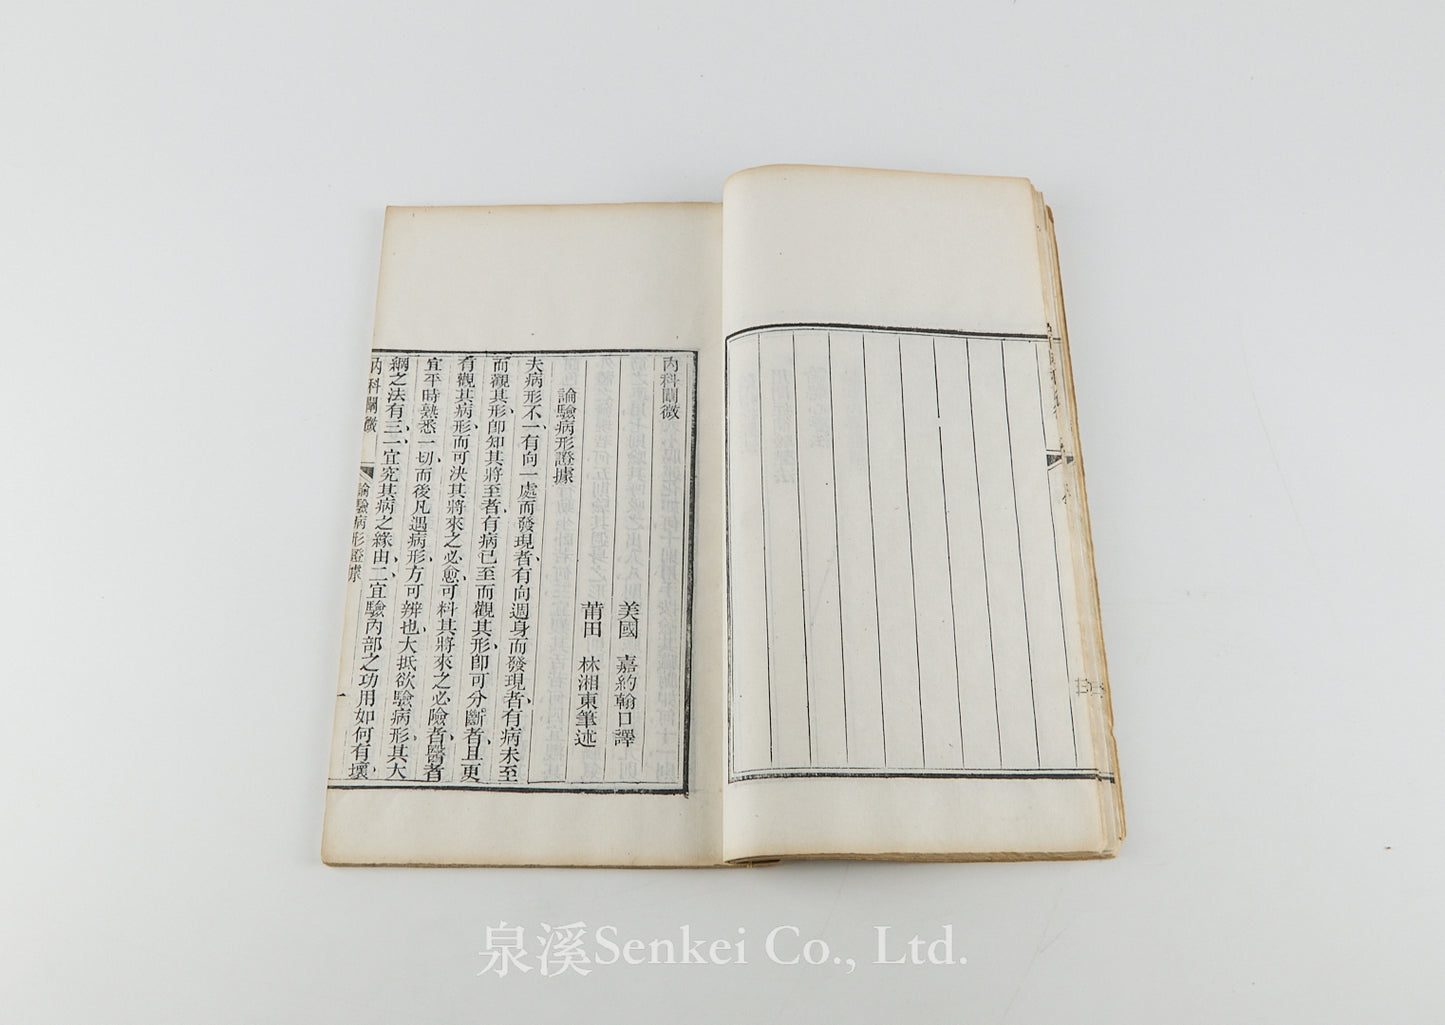 內科闡微
美國 嘉約翰口譯
莆田 林湘東筆述
論驗病形證據
夫病形不一、有向一處而發現者、有向週身而發現者、有病未至
而觀其形、即知其將至者、有病已至而觀其形、即可分斷者、且更
有觀其病形而可決其將來之必愈、可料其將來之必險者、醫者
宜平時熟悉一切、而後凡遇病形、方可辨也、大抵欲驗病形、其大
綱之法有三、一宜究其病之緣由、二宜驗內部之功用如何有壞
內科闡微
論驗病形證據
一
泉溪Senkei Co., Ltd.